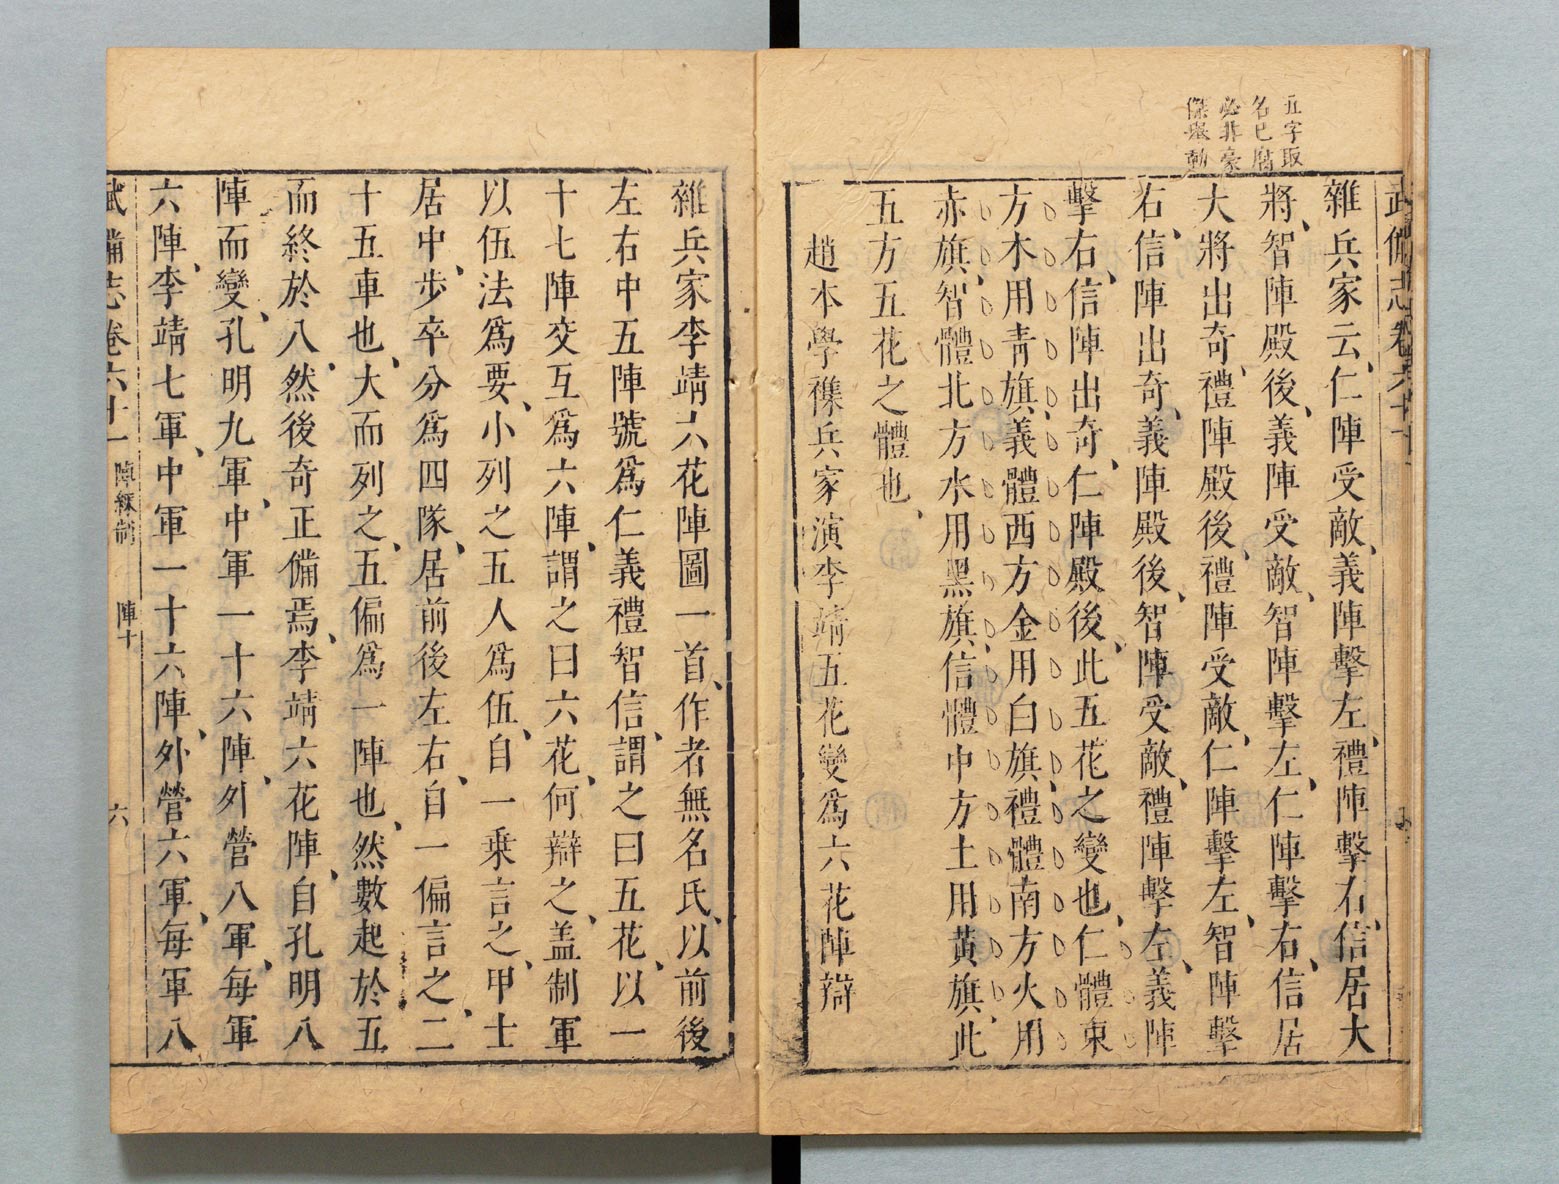 五字取
名已腐
必非豪
傑舉動
武備志卷六十一
雜兵家云、仁陣受敵、義陣擊左、禮陣擊右、信居大
將、智陣殿後、義陣受敵、智陣擊左、仁陣擊右、信居
大將出奇、禮陣殿後、禮陣受敵、仁陣擊左、智陣擊
右、信陣出奇、義陣殿後、智陣受敵、禮陣擊左、義陣
擊右、信陣出奇、仁陣殿後、此五花之變也、仁體東
方木用青旗、義體西方金用白旗、禮體南方火用
赤旗、智體北方水用黑旗、信體中方土用黃旗、此
五方五花之體也、
趙本學襍兵家演李靖五花變爲六花陣辯
雜兵家李靖六花陣圖一首、作者無名氏、以前後
左右中五陣號爲仁義禮智信、謂之曰五花、以一
十七陣交互爲六陣、謂之曰六花、何辯之、盖制軍
以伍法爲要、小列之五人爲伍、自一乗言之、甲士
居中、步卒分爲四隊、居前後左右、自一偏言之、二
十五車也、大而列之、五偏爲一陣也、然數起於五
而終於八、然後奇正備焉、李靖六花陣、自孔明八
陣而變、孔明九軍、中軍一十六陣、外營八軍、每軍
六陣、李靖七軍、中軍一十六陣、外營六軍、每軍八
武備志卷六十一 陣練制 陣十 六